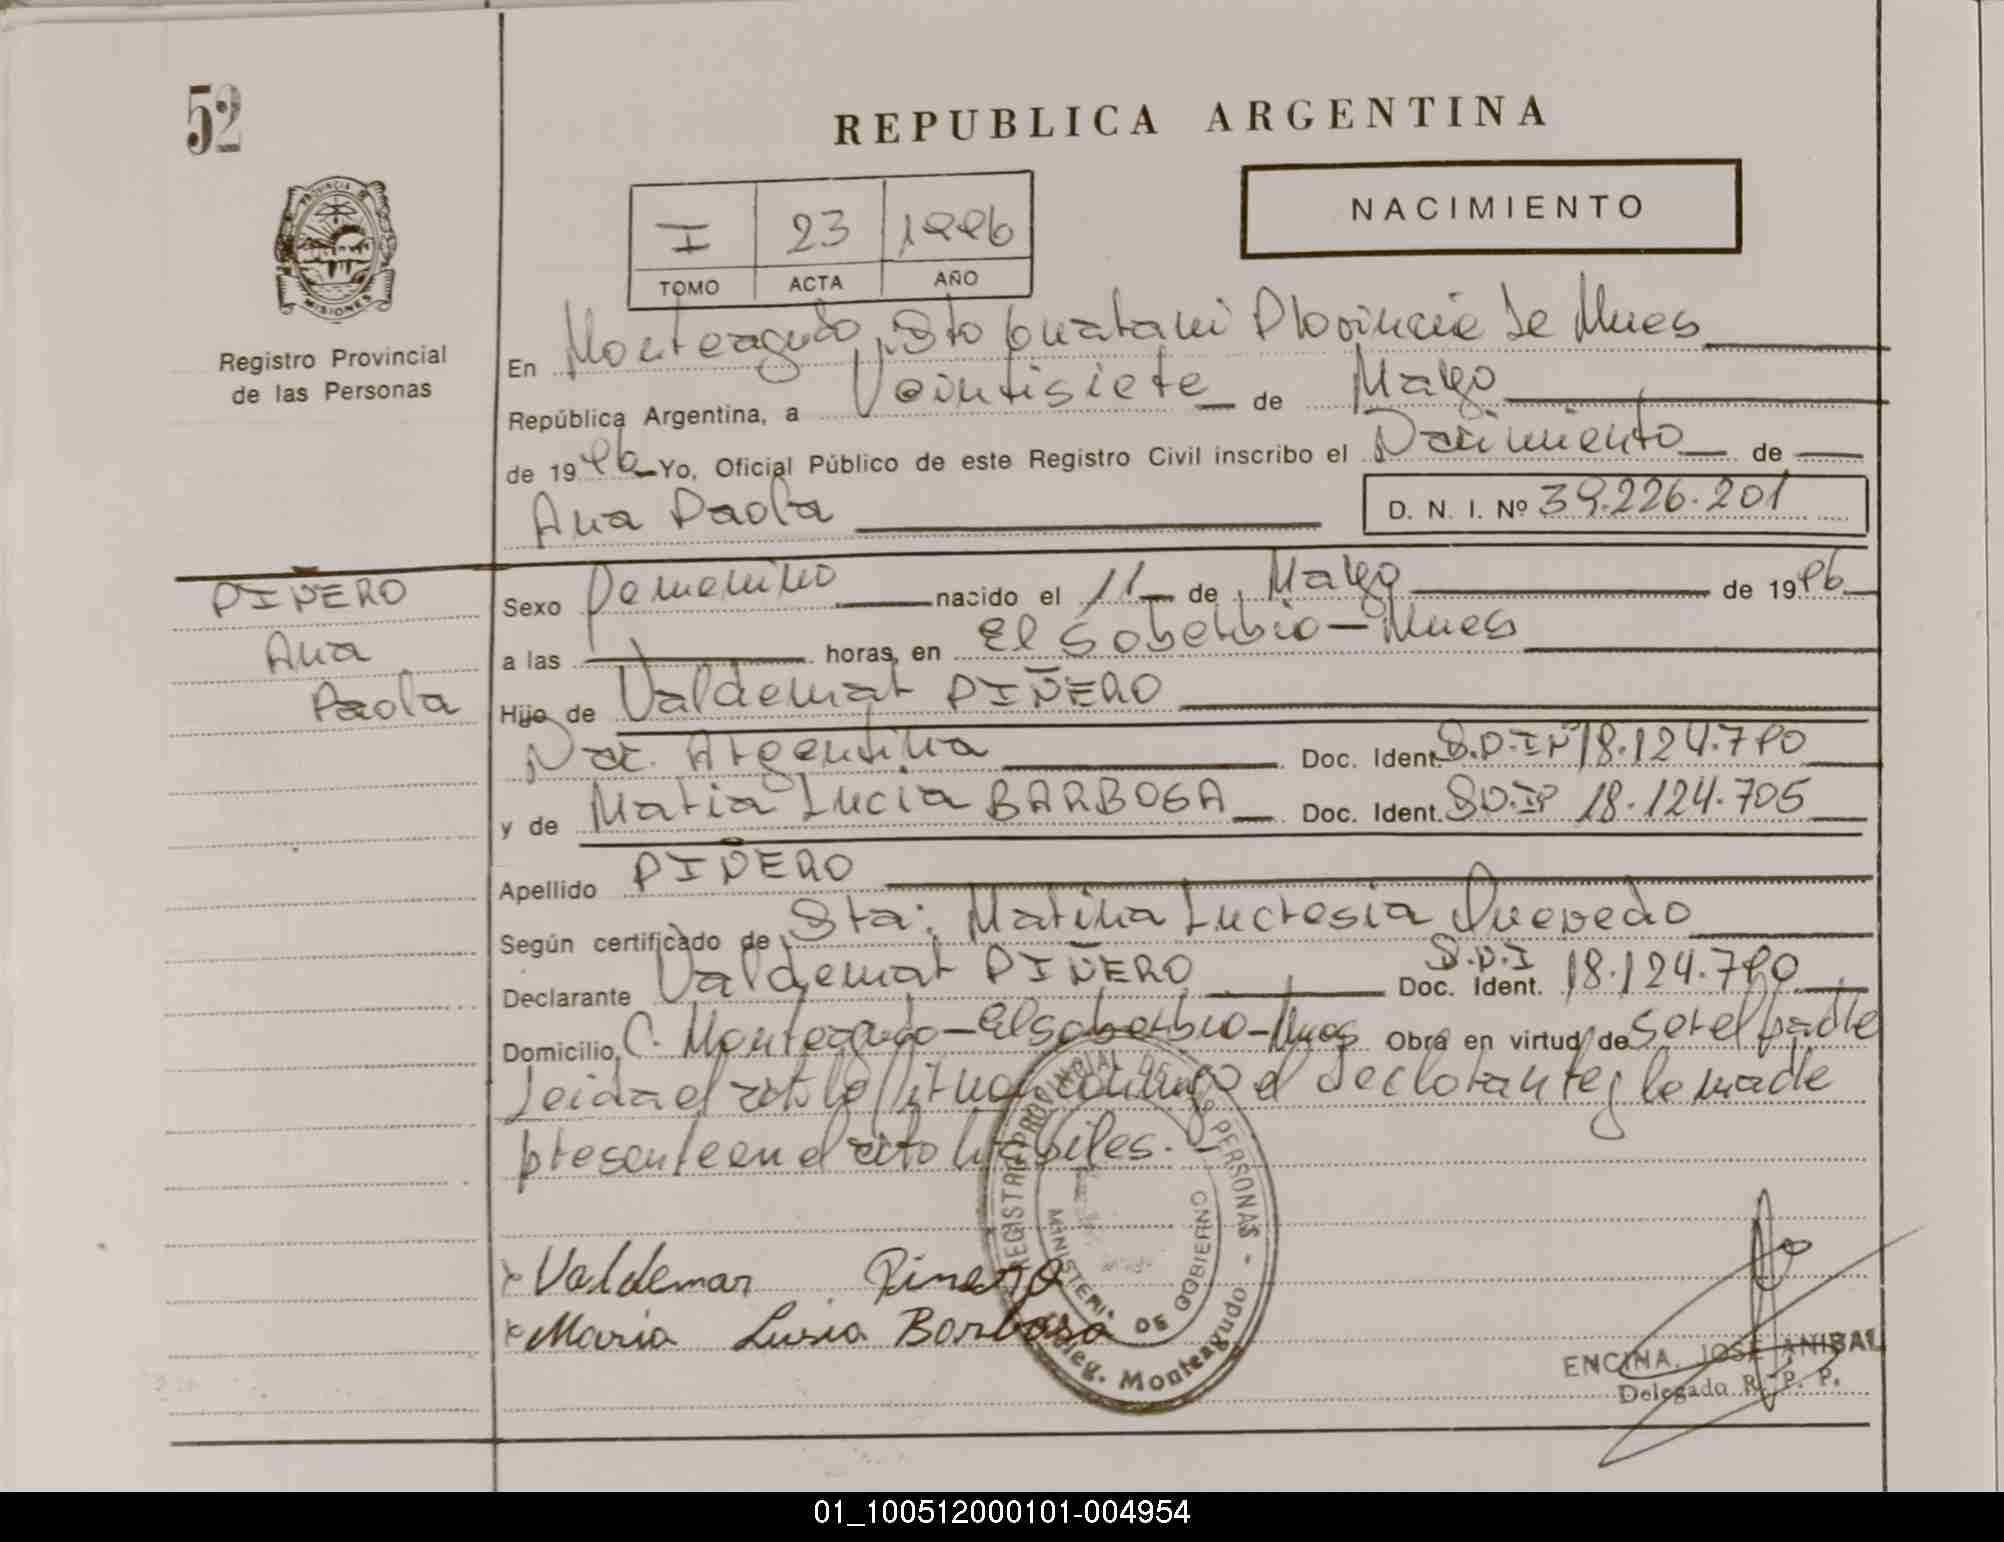 52
REPUBLICA ARGENTINA
NACIMIENTO
I 23 1996
TOMO ACTA AÑO
PROVINCIA DE MISIONES
Registro Provincial
de las Personas
En Monteagudo, Dto Guarani Provincia de Mnes
República Argentina, a Veintisiete de Mayo
de 1996 Yo, Oficial Público de este Registro Civil inscribo el Nacimiento de
Ana Paola
D. N. I. Nº 39.226.201
PIÑERO
Ana
Paola
Sexo Femenino nacido el 11 de Mayo de 1996
a las horas, en El Soberbio - Mnes
Hijo de Valdemar PIÑERO
Nac. Argentina Doc. Ident. D.N.I Nº 18.124.790
y de Maria Lucia BARBOSA Doc. Ident. D.N.I Nº 18.124.705
Apellido PIÑERO
Según certificado de Sta: Marina Lucresia Quevedo
Declarante Valdemar PIÑERO Doc. Ident. D.N.I 18.124.790
Domicilio C. Monteagudo - El Soberbio - Mnes Obra en virtud de ser el padre
Leida el acta la firman conmigo el declarante y la madre
presente en el acto habiles.-
REGISTRO PROVINCIAL DE LAS PERSONAS - Deleg. Monteagudo
MINISTERIO DE GOBIERNO
x Valdemar Pinero
x Maria Lusia Barbosa
ENCINA, JOSE ANIBAL
Delegado R. P. P.
01_100512000101-004954